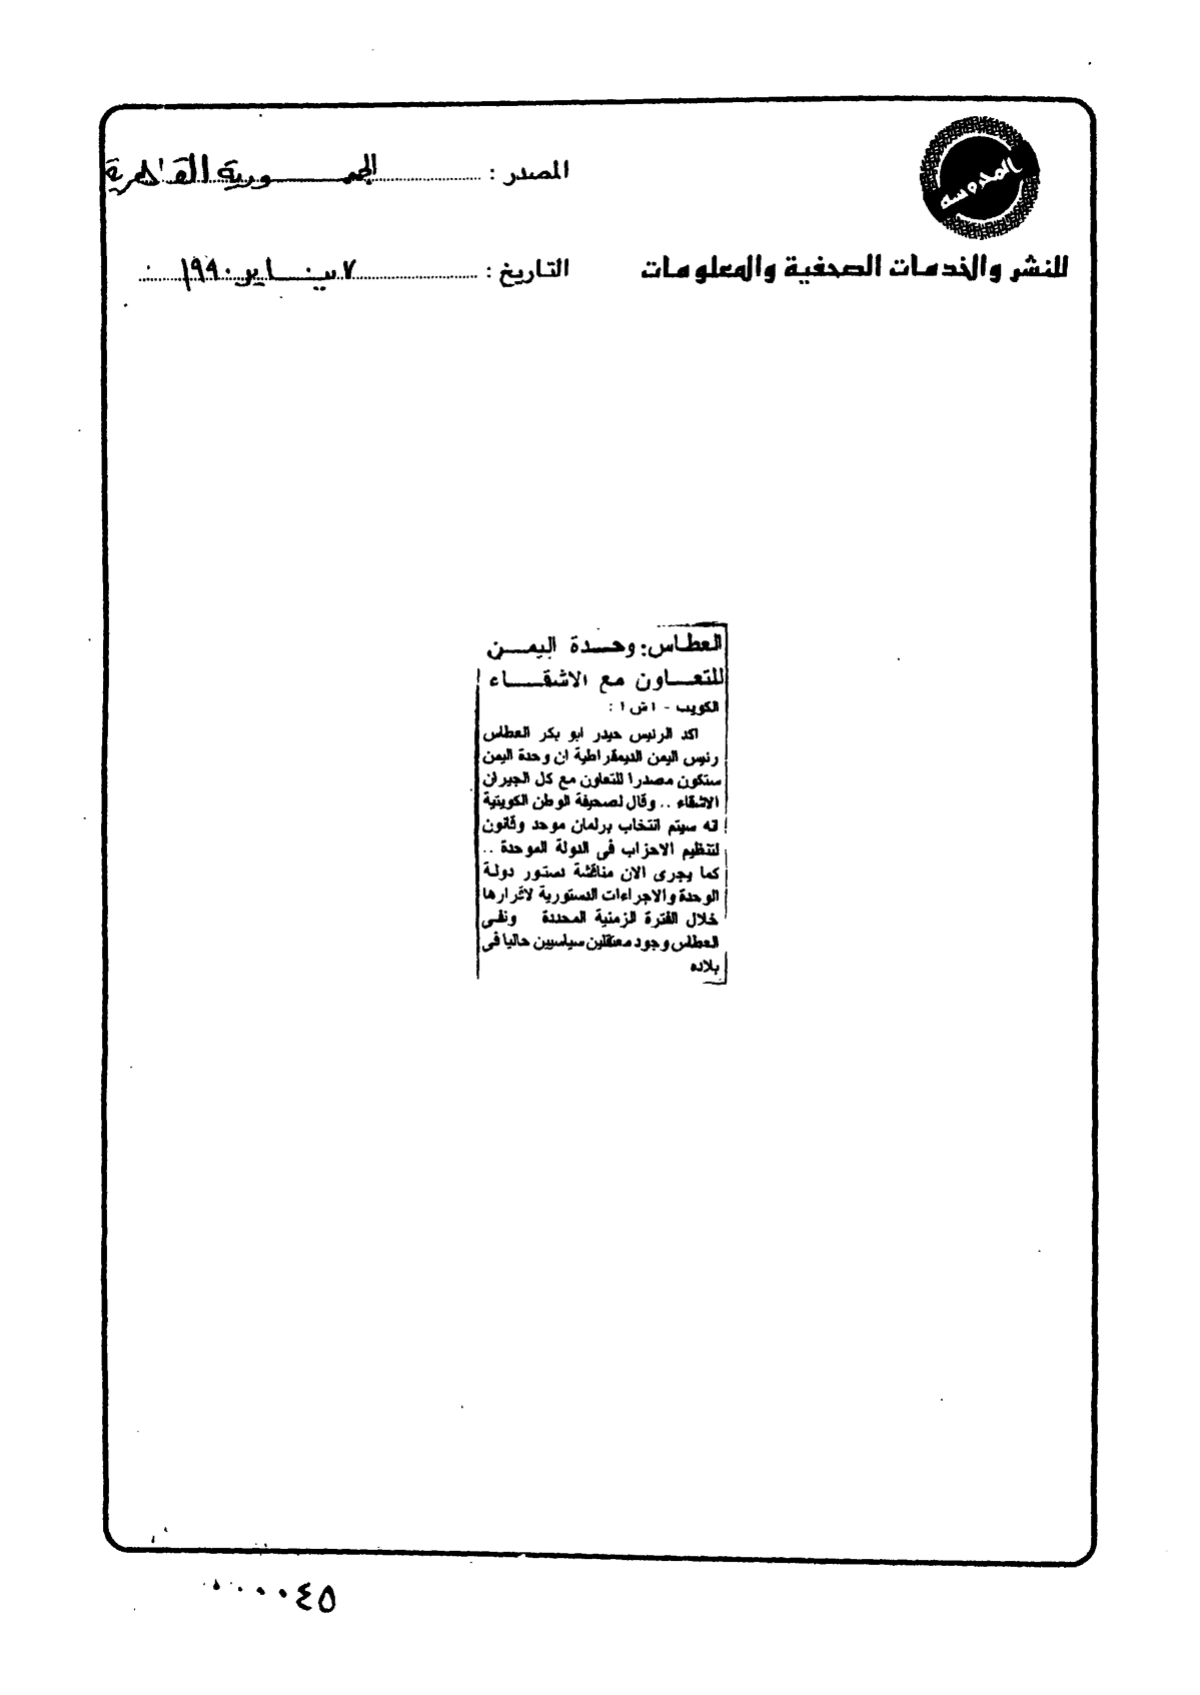 المحروسة
للنشر والخدمات الصحفية والمعلومات
المصدر : الجمهورية القاهرية
التاريخ : ٧ يناير ١٩٩٠
العطاس: وحدة اليمن
للتعاون مع الاشقاء
الكويت - ا ش ا :
اكد الرئيس حيدر ابو بكر العطاس
رئيس اليمن الديمقراطية ان وحدة اليمن
ستكون مصدرا للتعاون مع كل الجيران
الاشقاء .. وقال لصحيفة الوطن الكويتية
انه سيتم انتخاب برلمان موحد وقانون
لتنظيم الاحزاب فى الدولة الموحدة ..
كما يجرى الان مناقشة دستور دولة
الوحدة والاجراءات الدستورية لاقرارها
خلال الفترة الزمنية المحددة ونفى
العطاس وجود معتقلين سياسيين حاليا فى
بلاده
٠٠٠٠٤٥